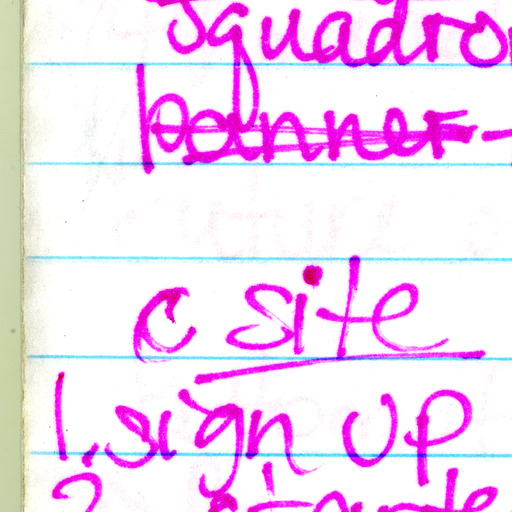 squadro
banner-
c site
1. sign up
2